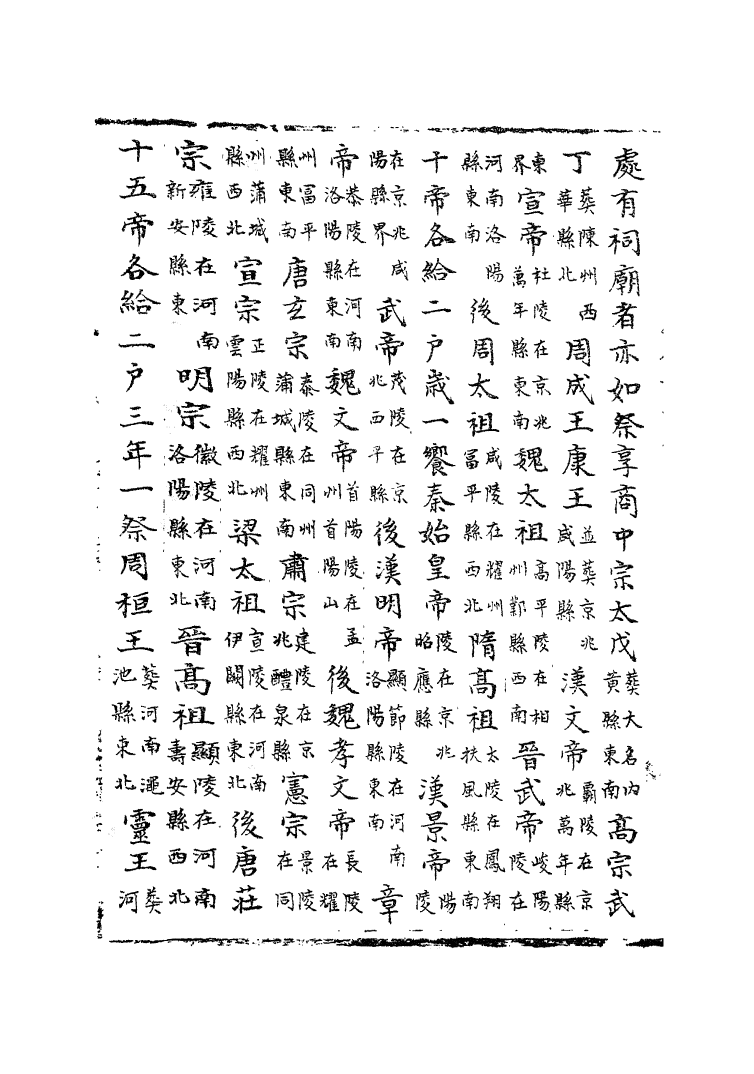 處有祠廟者亦如祭享商中宗太戊葬大名内黃縣東南高宗武
丁葬陳州西華縣北周成王康王並葬京兆咸陽縣漢文帝霸陵在京兆萬年縣
東界宣帝杜陵在京兆萬年縣東南魏太祖高平陵在相州鄴縣西南晉武帝峻陽陵在
河南洛陽縣東南後周太祖咸陵在耀州富平縣西北隋高祖太陵在鳳翔扶風縣東南
十帝各給二户歲一饗秦始皇帝陵在京兆昭應縣漢景帝陽陵
在京兆咸陽縣界武帝茂陵在京兆西平縣後漢明帝顯節陵在河南洛陽縣東南章
帝恭陵在河南洛陽縣東南魏文帝首陽陵在孟州首陽山後魏孝文帝長陵在耀
州富平縣東南唐玄宗泰陵在同州蒲城縣東南肅宗建陵在京兆醴泉縣憲宗景陵在同
州蒲城縣西北宣宗正陵在耀州雲陽縣西北梁太祖宣陵在河南伊闕縣東北後唐莊
宗雍陵在河南新安縣東明宗徽陵在河南洛陽縣東北晉高祖顯陵在河南壽安縣西北
十五帝各給二户三年一祭周桓王葬河南澠池縣東北靈王葬河